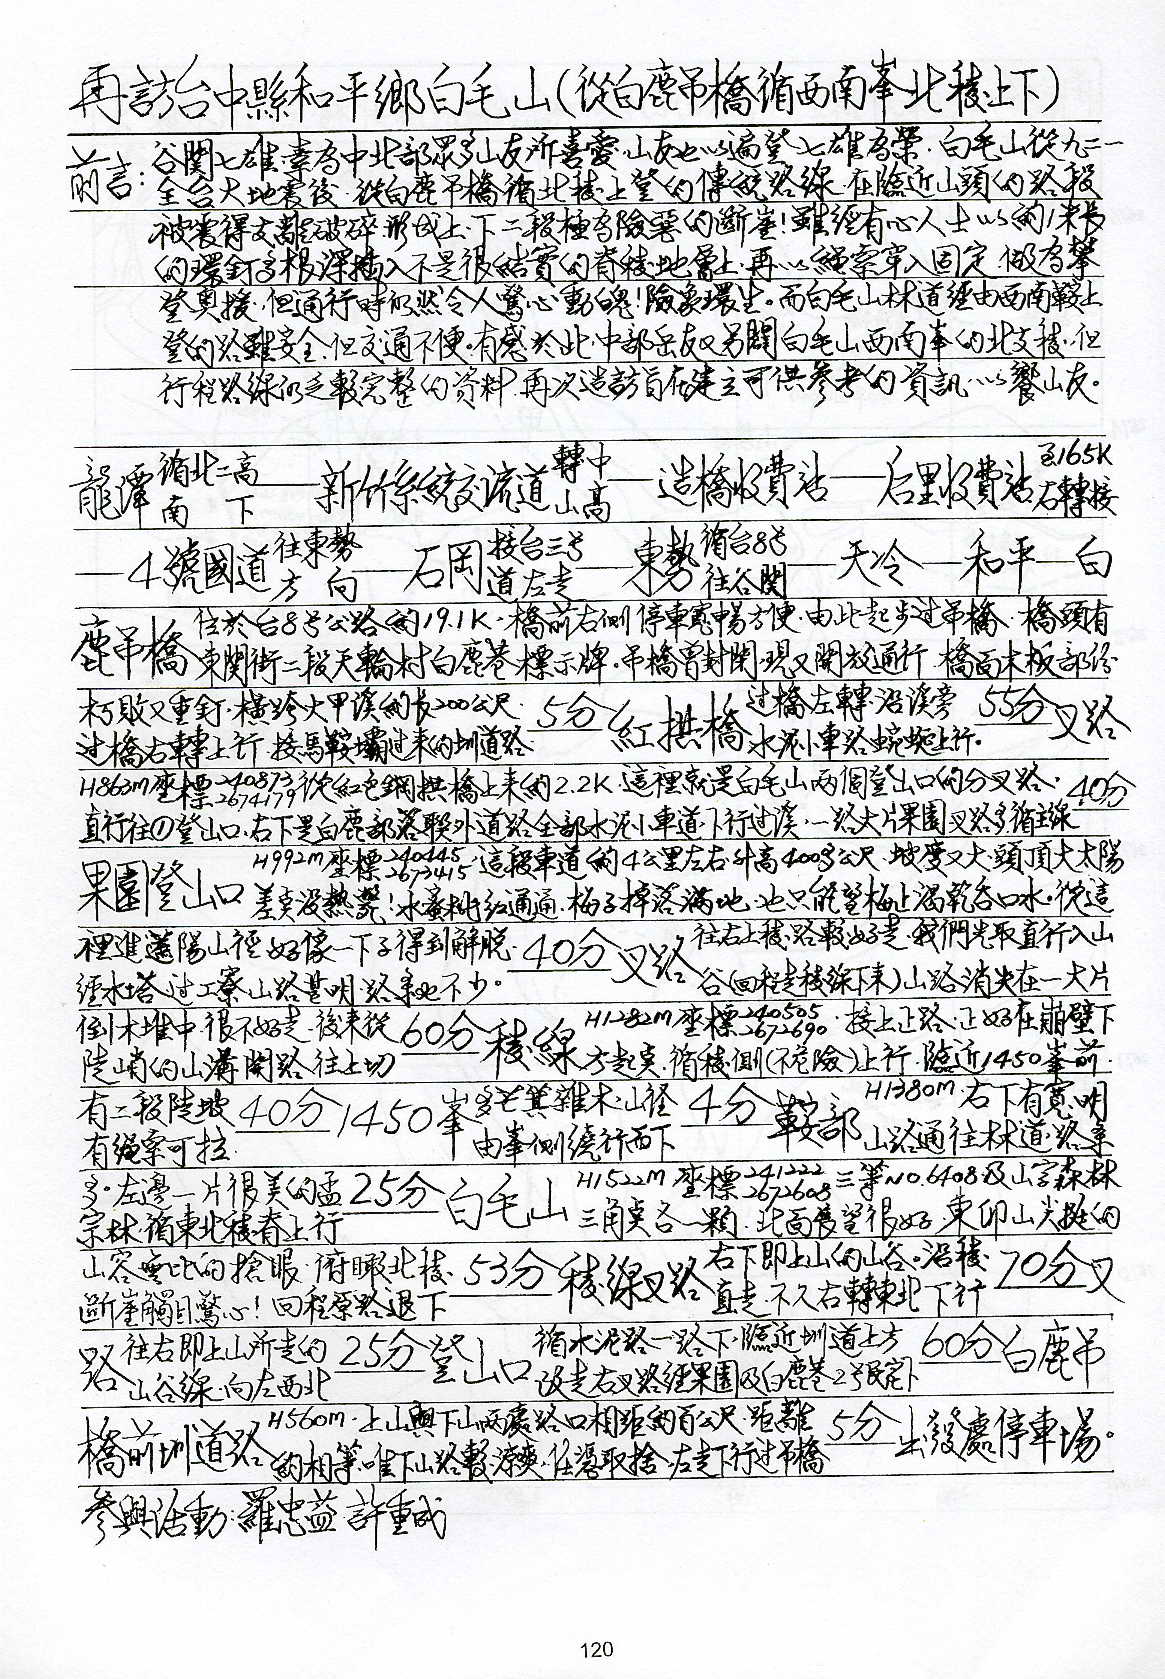 再訪台中縣和平鄉白毛山(從白鹿吊橋循西南峯北稜上下)
前言:谷関七雄素為中北部眾多山友所喜愛,山友也以遍登七雄為榮.白毛山從九二一
全台大地震後.從白鹿吊橋循北稜上登的傳統路線.在臨近山頭的路段
被震得支離破碎.形成上、下二段極為險惡的斷崖!雖經有心人士以約1米長
的環釘多根深插入不是很結實的脊稜地層上.再以繩索穿入固定.做為攀
登奧援.但通行時仍然令人驚心動魄!險象環生。而白毛山林道經由西南鞍上
登的路雖安全.但交通不便.有感於此.中部岳友又另闢白毛山西南峯的北支稜.但
行程路線仍乏較完整的資料.再次造訪旨在建立可供參考的資訊.以饗山友。
龍潭 循北二高南下—新竹系統交流道 轉中山高—造橋收費站—后里收費站 至165K右轉接
—4號國道 往東勢方向—石岡 接台三号道左走—東勢 循台8号往谷関—天冷—和平—白
鹿吊橋 位於台8号公路約19.1K.橋前右側停車寬暢方便.由此起步过吊橋.橋頭有
東関街二段天輪村白鹿巷標示牌。吊橋曾封閉.現又開放通行.橋面木板部份
朽敗又重釘.橫跨大甲溪約長200公尺.
过橋右轉上行.接馬鞍壩过来的圳道路 5分 紅拱橋 过橋左轉.沿溪旁水泥小車路蜿蜒上行。 55分 叉路
H863m座標240873 2674179從紅色鋼拱橋上来約2.2K.這裡就是白毛山兩個登山口的分叉路. 40分
直行往①登山口.右下是白鹿部落聯外道路.全部水泥小車道.下行过溪.一路大片果園叉路多循主線
果園登山口 H992m座標240445 2673415.這段車道約4公里左右升高400多公尺.坡度又大.頭頂大太陽
差点沒熱斃!水蜜桃紅通通.梅子掉落滿地.也只能望梅止渴乾吞口水.從這
裡進蔭陽山徑好像一下子得到解脫.
經水塔.过工寮.山路甚明.路条也不少。 40分 叉路 往右上稜.路較好走.我們先取直行入山
谷(回程走稜線下来)山路消失在一大片
倒木堆中很不好走.後来從
陡峭的山溝開路往上切 60分 稜線 H1282m座標240505 2672690.接上正路.正好在崩壁下
方起点.循稜側(不危險)上行.臨近1450峯前.
有二段陡坡
有繩索可拉. 40分 1450峯 多芒箕雜木.山徑
由峯側繞行而下 4分 鞍部 H1380m.右下有寬明
山路通往林道.路条
多.左邊一片很美的孟
宗林.循東北稜脊上行 25分 白毛山 H1522m 座標241222 2672608 三等NO.6408.及山字森林
三角点各一顆.北面展望很好.東卯山尖挺的
山容無比的搶眼.俯瞰北稜
斷崖觸目驚心!回程原路退下 53分 稜線叉路 右下即上山的山谷。沿稜
直走.不久右轉東北下行 70分 叉
路 往右即上山所走的
山谷線.向左西北 25分 登山口 循水泥路一路下.臨近圳道上方
改走右叉路經果園及白鹿巷2号民宅下 60分 白鹿吊
橋前圳道路 H560m.上山與下山兩處路口相距約百公尺.距離
約相等.唯下山路較涼爽.任憑取捨.左走下行过吊橋 5分 出發處停車場。
參與活動:羅忠益 許重成
120